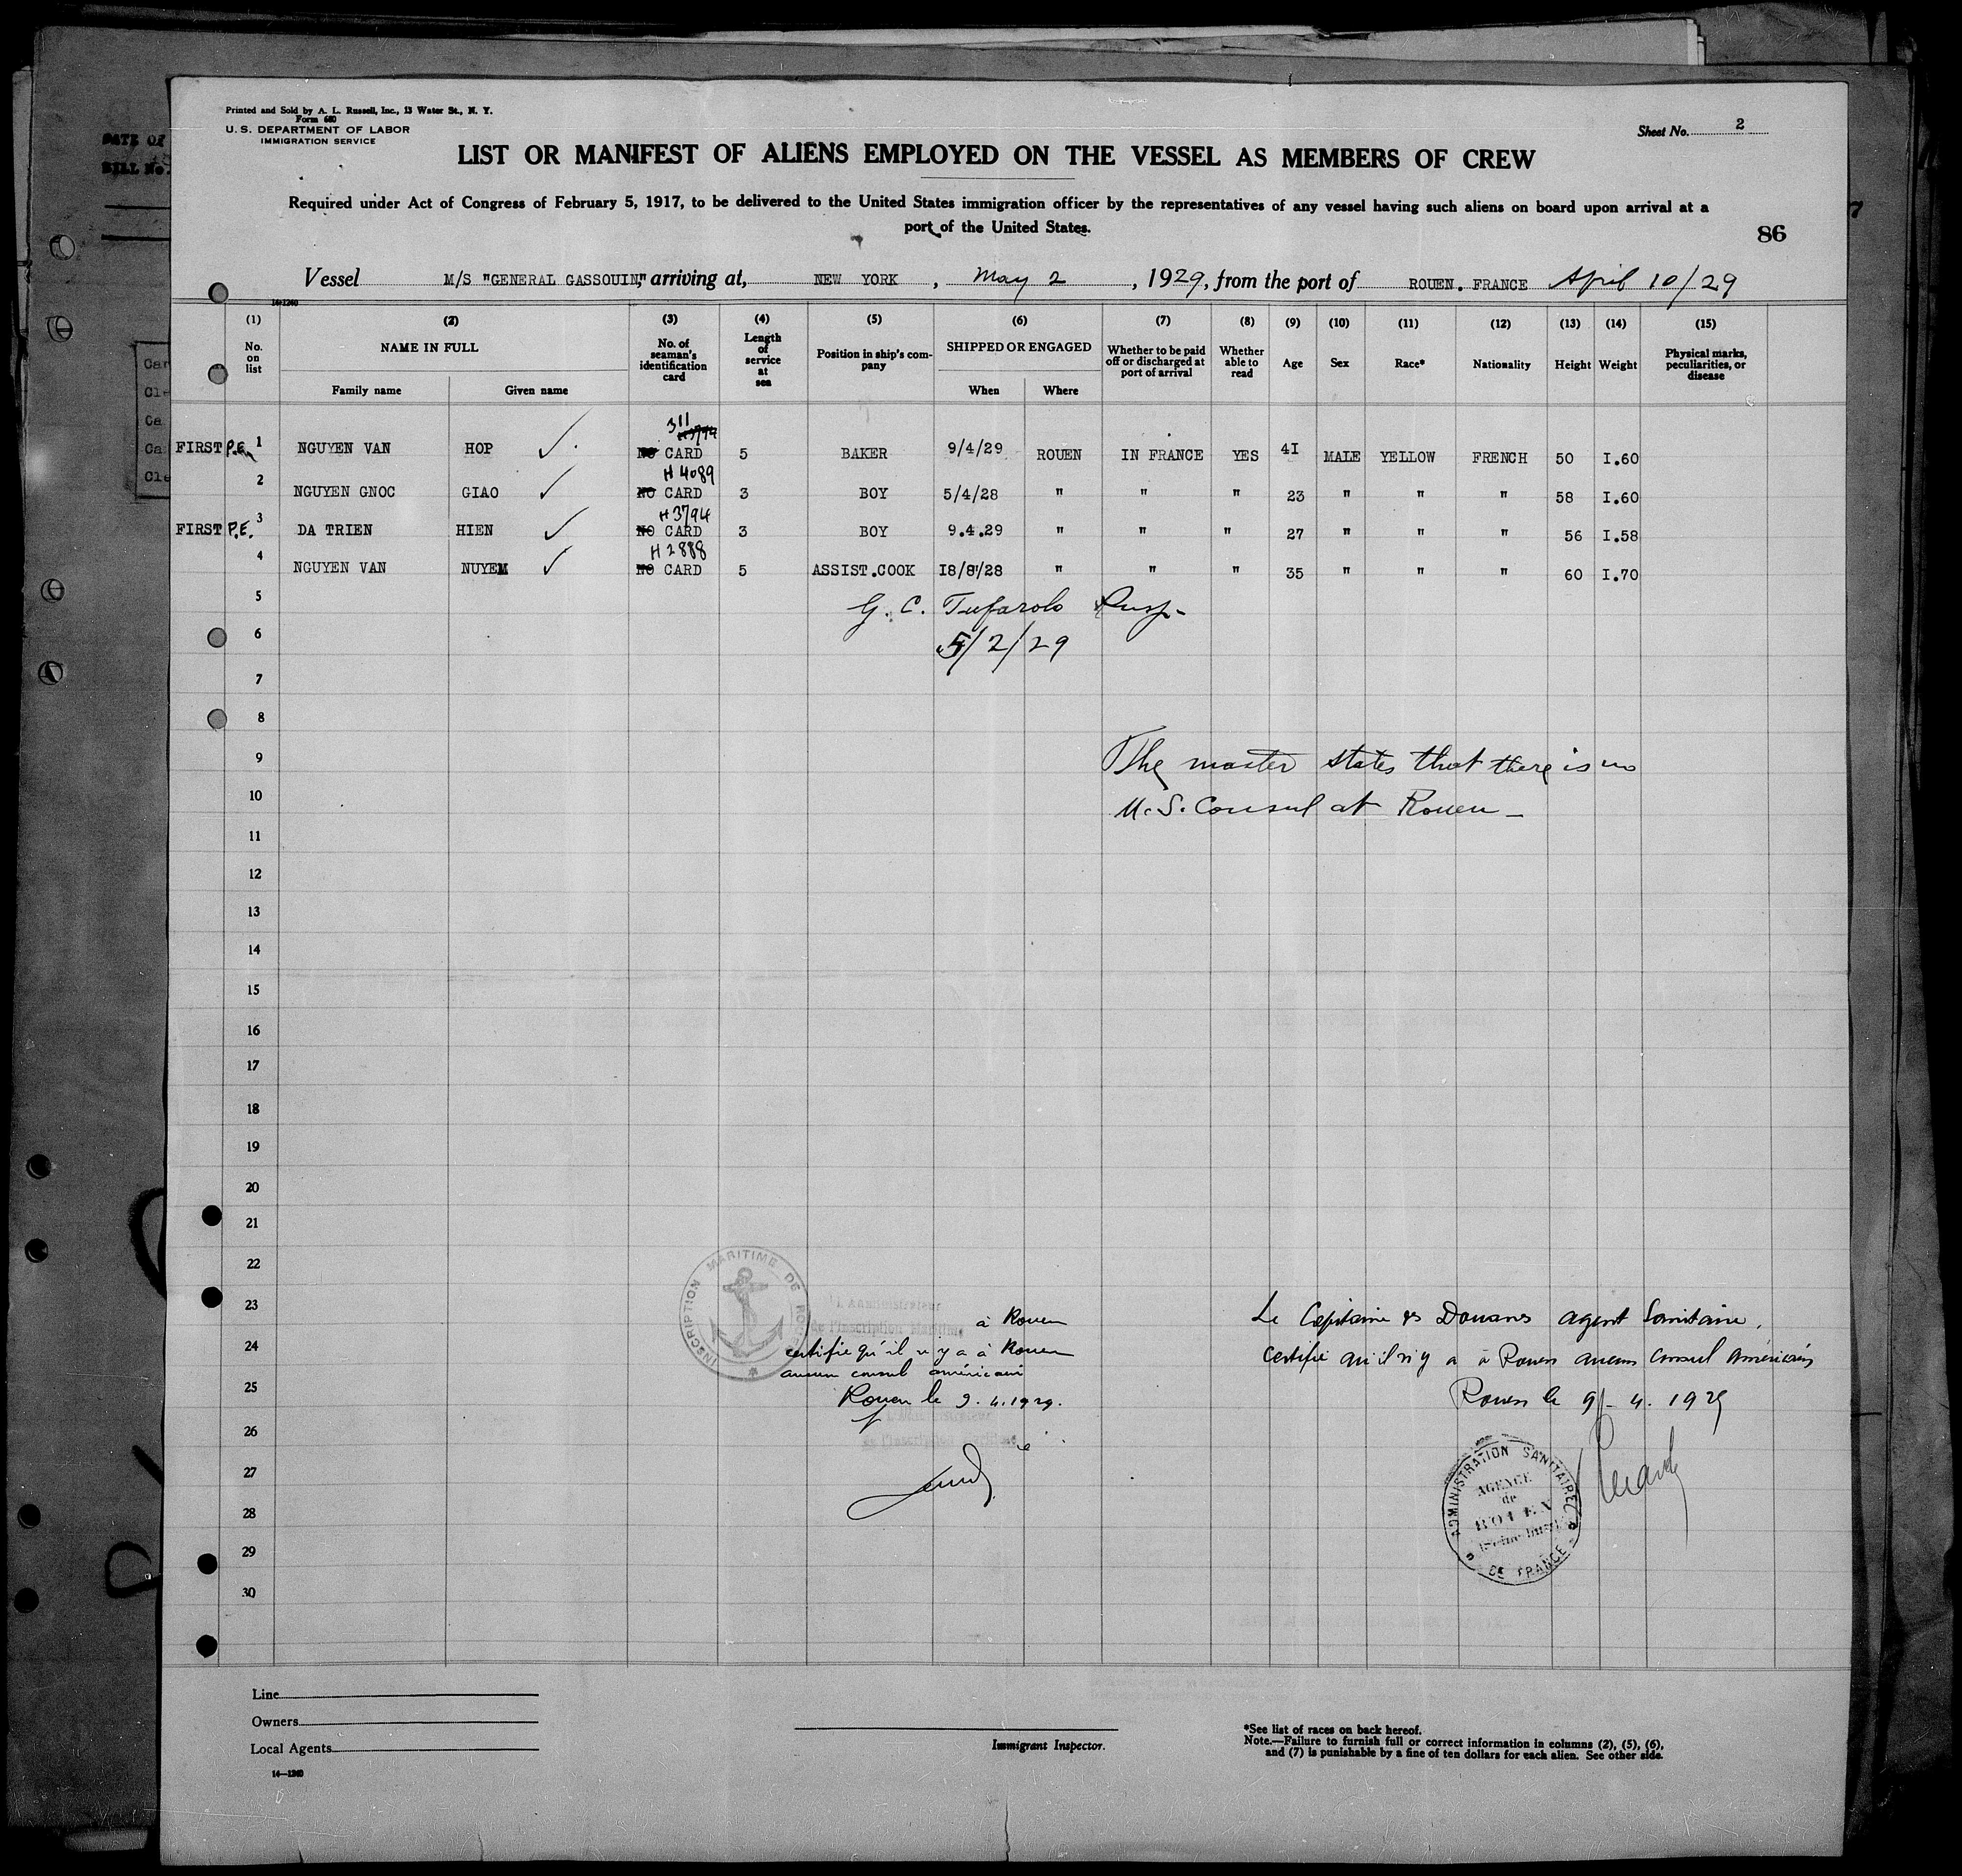 Printed and Sold by A. L. Russell, Inc., 13 Water St., N. Y.
Form 680
U. S. DEPARTMENT OF LABOR
IMMIGRATION SERVICE
Sheet No. 2
LIST OR MANIFEST OF ALIENS EMPLOYED ON THE VESSEL AS MEMBERS OF CREW
Required under Act of Congress of February 5, 1917, to be delivered to the United States immigration officer by the representatives of any vessel having such aliens on board upon arrival at a
port of the United States.
86
DATE OF
BILL No.
Vessel M/S "GENERAL GASSOUIN", arriving at, NEW YORK, May 2, 1929, from the port of ROUEN. FRANCE April 10/29
14-1240
(1) (2) (3) (4) (5) (6) (7) (8) (9) (10) (11) (12) (13) (14) (15)
No. on list
NAME IN FULL
Family name Given name
No. of seaman's identification card
Length of service at sea
Position in ship's company
SHIPPED OR ENGAGED
When Where
Whether to be paid off or discharged at port of arrival
Whether able to read
Age Sex Race* Nationality Height Weight
Physical marks, peculiarities, or disease
311
FIRST P.E. 1 NGUYEN VAN HOP NO CARD 5 BAKER 9/4/29 ROUEN IN FRANCE YES 4I MALE YELLOW FRENCH 50 I.60
H 4089
2 NGUYEN GNOC GIAO NO CARD 3 BOY 5/4/28 " " " 23 " " " 58 I.60
H 3794
FIRST P.E. 3 DA TRIEN HIEN NO CARD 3 BOY 9.4.29 " " " 27 " " " 56 I.58
H 2888
4 NGUYEN VAN NUYEM NO CARD 5 ASSIST.COOK I8/8/28 " " " 35 " " " 60 I.70
5 G. C. Tufarolo Insp-
6 5/2/29
7
8
9 The master states that there is no
10 U.S. Consul at Rouen -
11
12
13
14
15
16
17
18
19
20
21
22
23
24
25
26
27
28
29
30
INSCRIPTION MARITIME DE ROUEN
L'Administrateur
de l'Inscription Maritime
à Rouen
certifie qu'il n'y a à Rouen
aucun consul américain
Rouen le 9.4.1929.
L'Administrateur
de l'Inscription Maritime
Le Capitaine des Douanes agent Sanitaire,
certifie qu'il n'y a à Rouen aucun consul américain
Rouen le 9-4.1929
ADMINISTRATION SANITAIRE
AGENCE
de
ROUEN
DE FRANCE
Line
Owners
Local Agents
14—1240
Immigrant Inspector.
*See list of races on back hereof.
Note.—Failure to furnish full or correct information in columns (2), (5), (6),
and (7) is punishable by a fine of ten dollars for each alien. See other side.